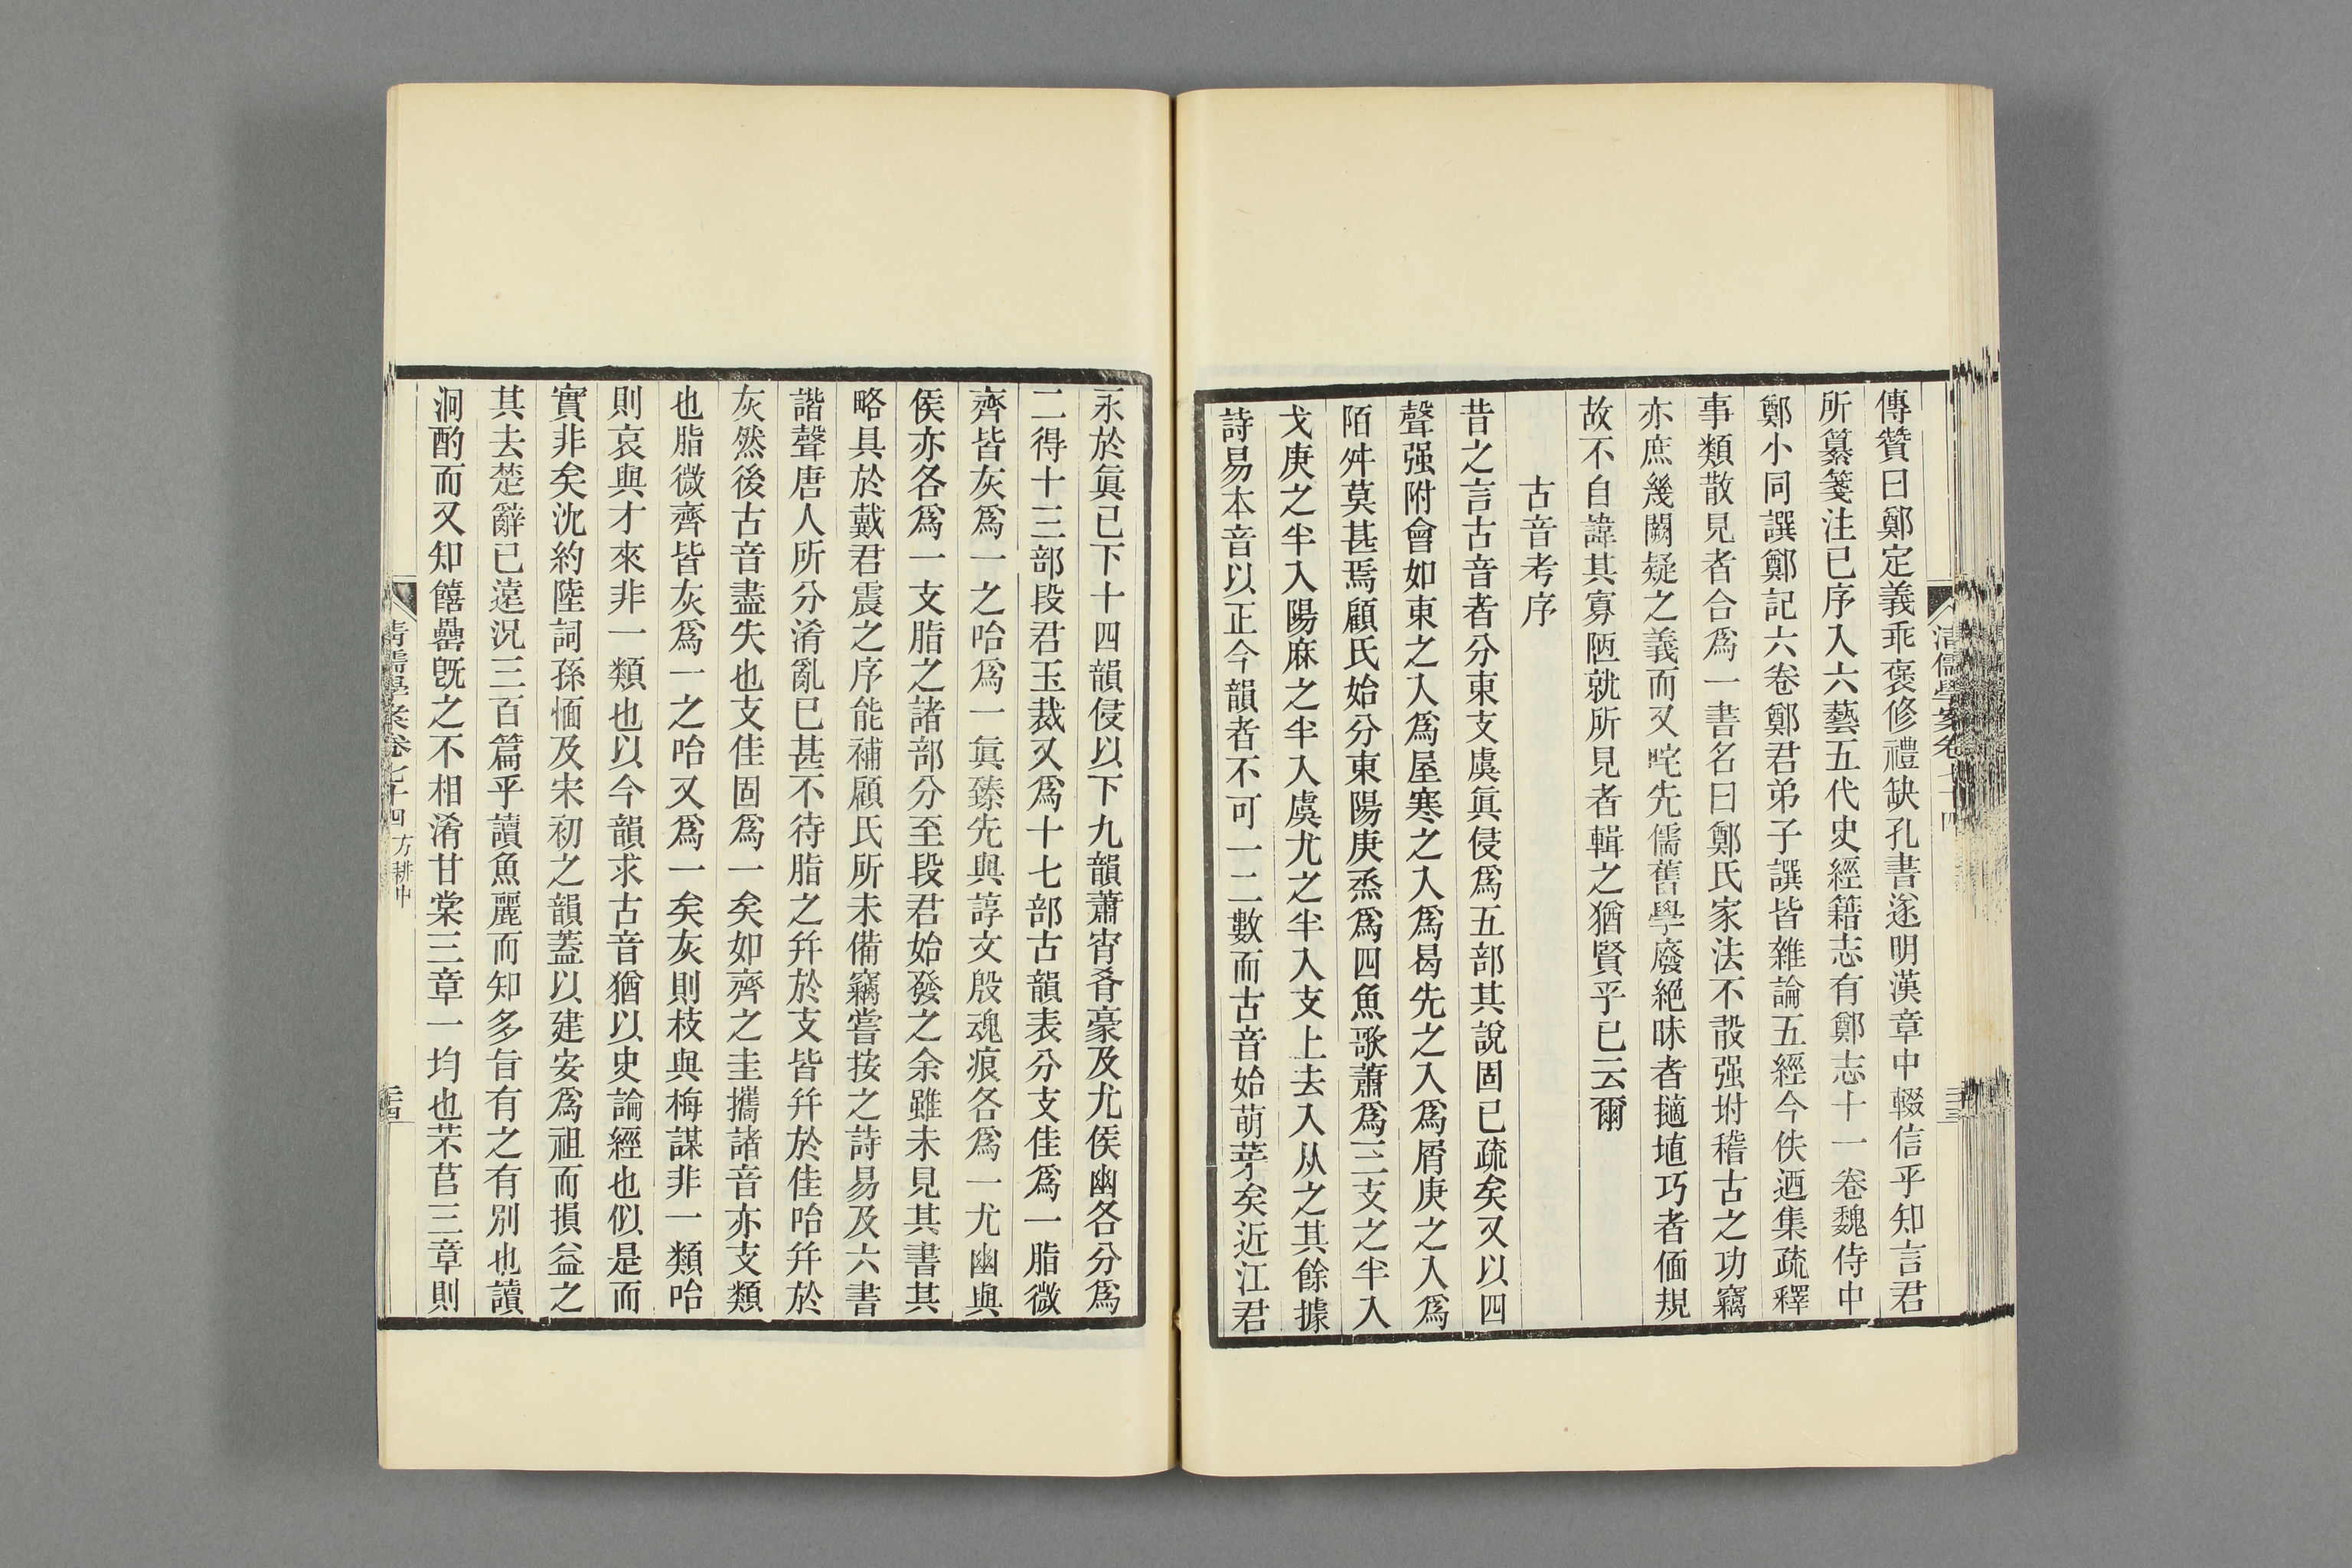 傳贊曰鄭定義乖褒修禮缺孔書遂明漢章中輟信乎知言君
所纂箋注已序入六藝五代史經籍志有鄭志十一卷魏侍中
鄭小同譔鄭記六卷鄭君弟子譔皆雜論五經今佚迺集疏釋
事類散見者合爲一書名曰鄭氏家法不敢强坿稽古之功竊
亦庶幾闕疑之義而又咤先儒舊學廢絕昧者擿埴巧者偭規
故不自諱其寡陋就所見者輯之猶賢乎已云爾
古音考序
昔之言古音者分東支虞眞侵爲五部其說固已疏矣又以四
聲强附會如東之入爲屋寒之入爲曷先之入爲屑庚之入爲
陌舛莫甚焉顧氏始分東陽庚烝爲四魚歌蕭爲三支之半入
戈庚之半入陽麻之半入虞尤之半入支上去入从之其餘據
詩易本音以正今韻者不可一二數而古音始萌芽矣近江君
永於眞已下十四韻侵以下九韻蕭宵肴豪及尤侯幽各分爲
二得十三部段君玉裁又爲十七部古韻表分支佳爲一脂微
齊皆灰爲一之咍爲一眞臻先與諄文殷魂痕各爲一尤幽與
侯亦各爲一支脂之諸部分至段君始發之余雖未見其書其
略具於戴君震之序能補顧氏所未備竊嘗按之詩易及六書
諧聲唐人所分淆亂已甚不待脂之幷於支皆幷於佳咍幷於
灰然後古音盡失也支佳固爲一矣如齊之圭攜諸音亦支類
也脂微齊皆灰爲一之咍又爲一矣灰則枝與梅謀非一類咍
則哀與才來非一類也以今韻求古音猶以史論經也似是而
實非矣沈約陸詞孫愐及宋初之韻蓋以建安爲祖而損益之
其去楚辭已遠況三百篇乎讀魚麗而知多旨有之有別也讀
泂酌而又知饎罍旣之不相淆甘棠三章一均也芣苢三章則
清儒學案卷七十四 方耕中